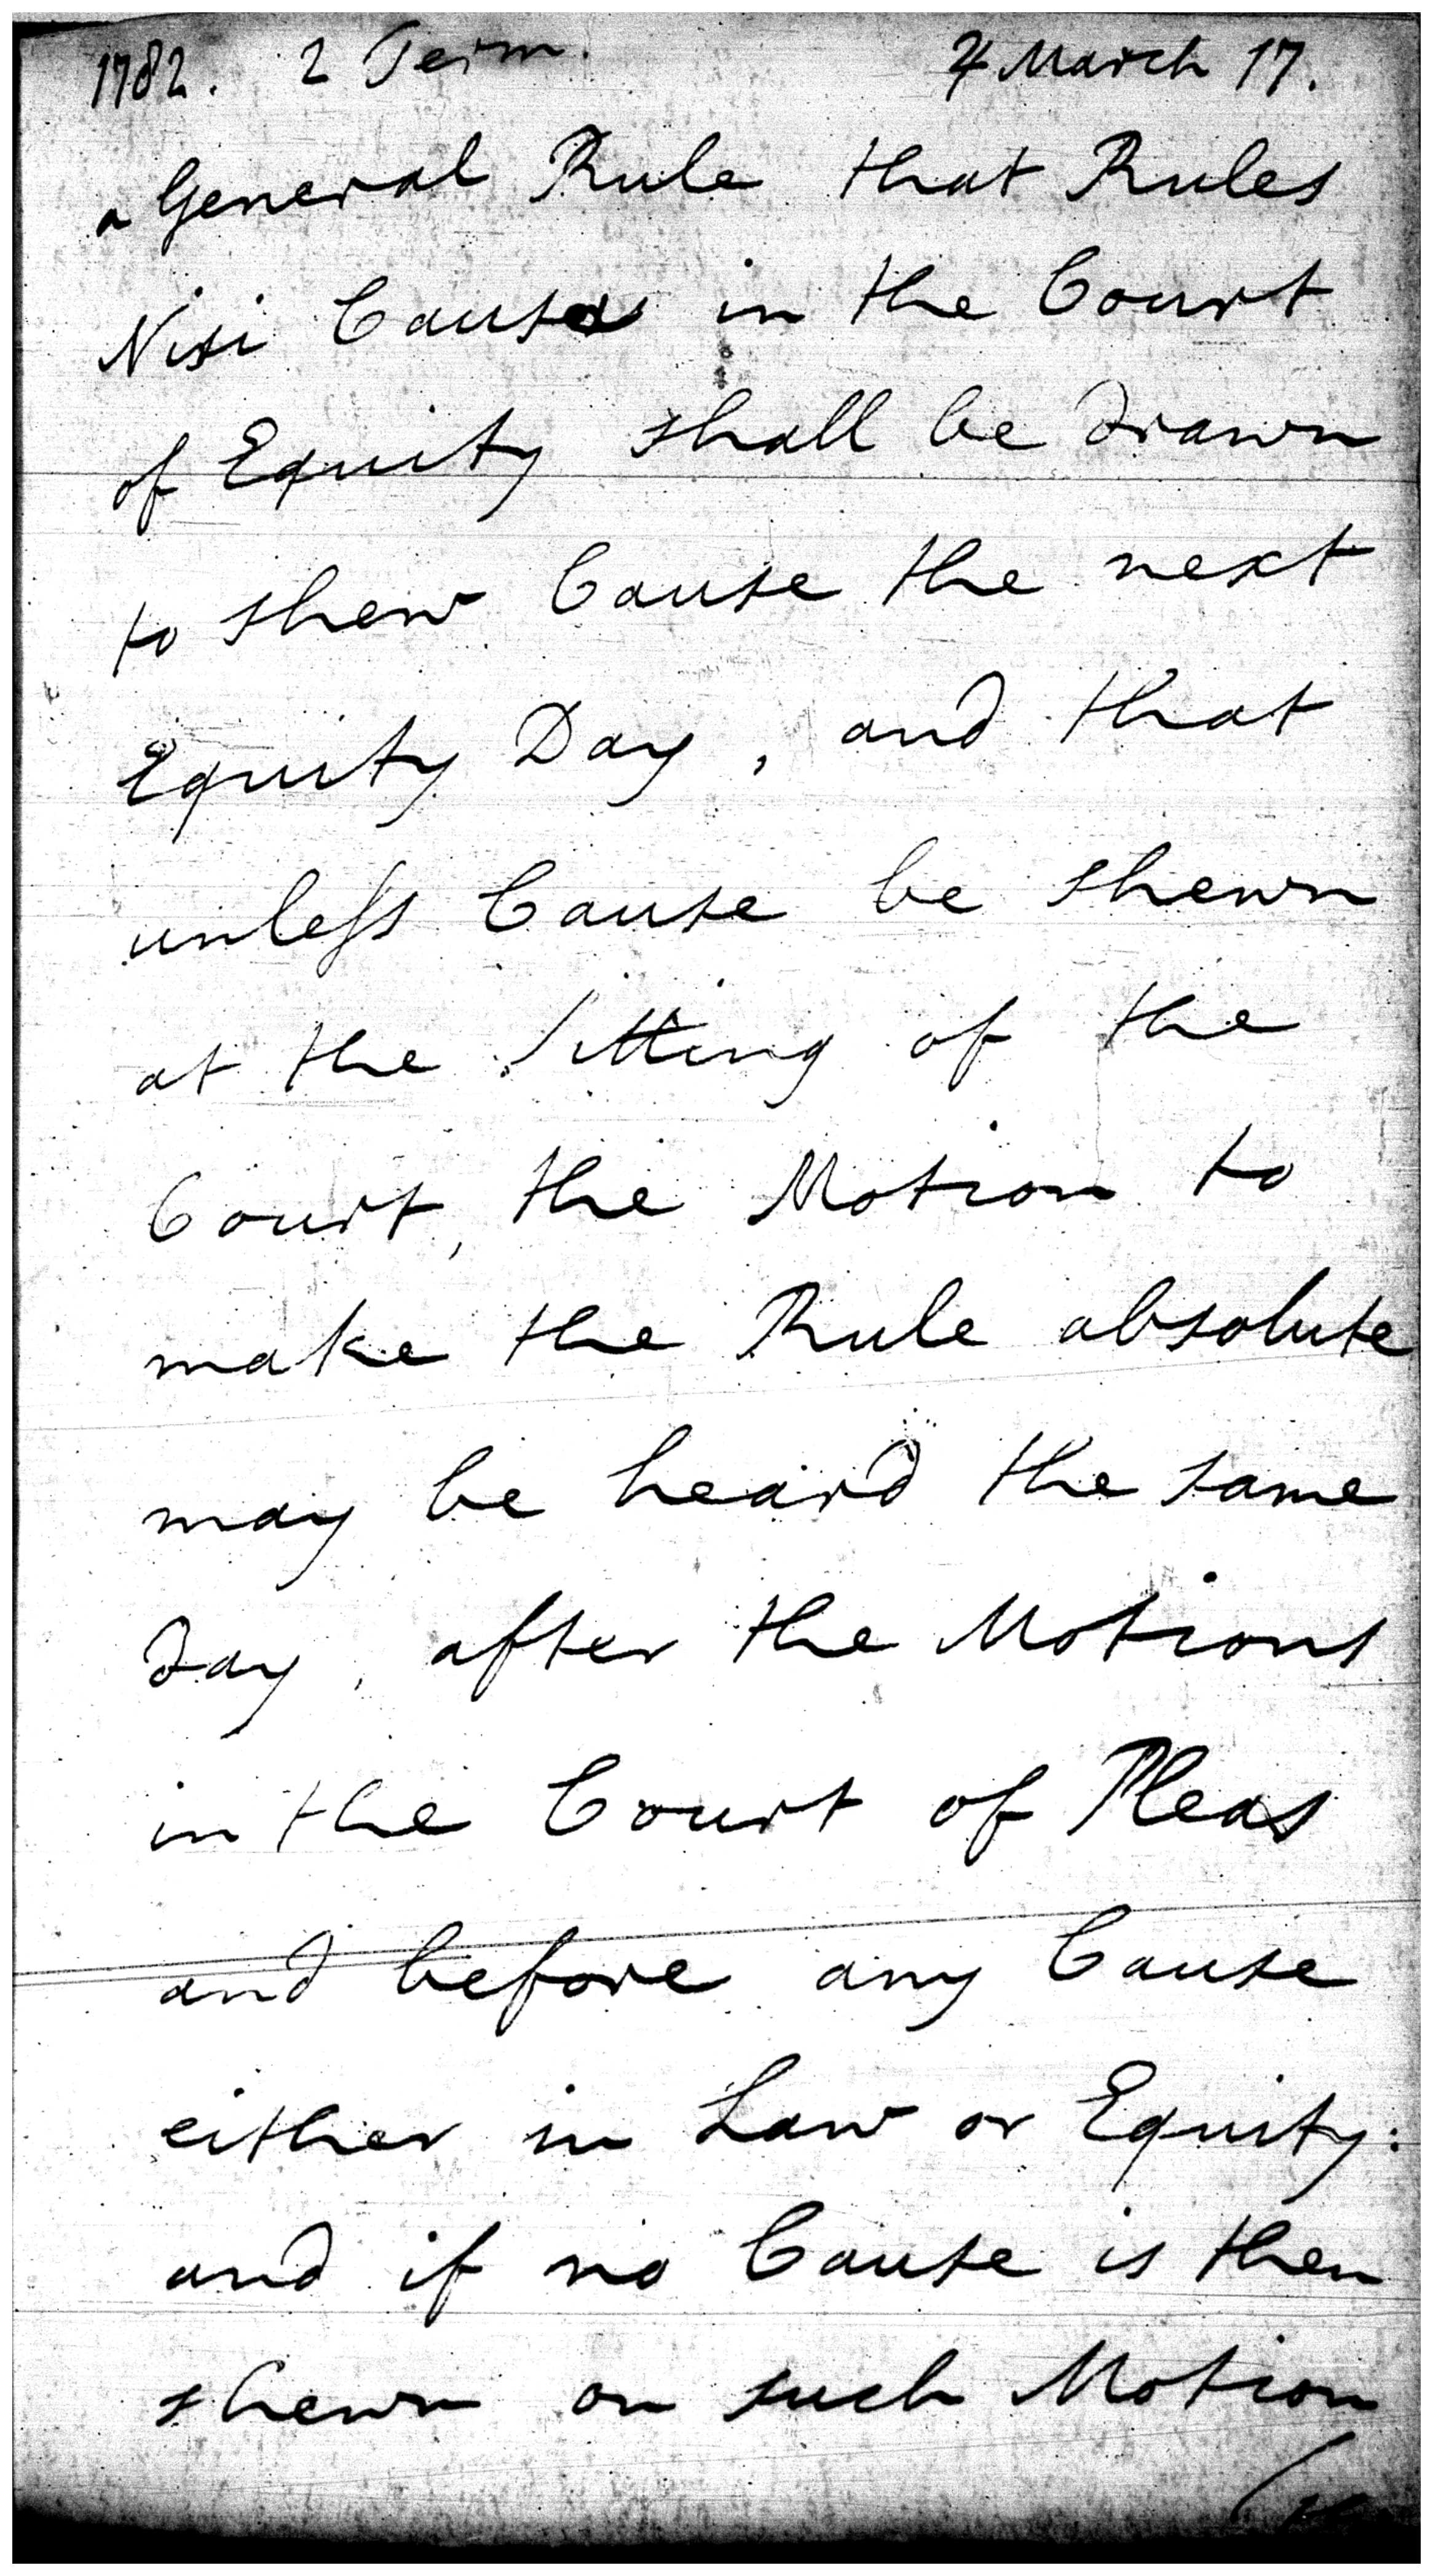 1782. 2 Term. 4 March 17.
a General Rule that Rules
Nisi Causa in the Court
of Equity shall be drawn
to shew Cause the next
Equity Day, and that
unleſs Cause be shewn
at the Sitting of the
Court, the Motion to
make the Rule absolute
may be heard the same
day, after the Motions
in the Court of Pleas
and before any Cause
either in Law or Equity:
and if no Cause is then
shewn on such Motion